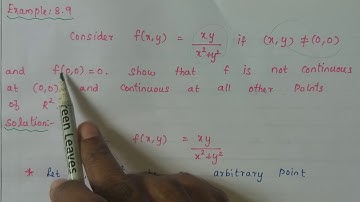 Example: 8.9
Consider f(x,y) = xy / x²+y² if (x,y) ≠ (0,0)
and f(0,0) = 0. show that f is not continuous
at (0,0) and continuous at all other points
of R²
Solution:-
f(x,y) = xy / x²+y²
* Let arbitrary point
een Leaves